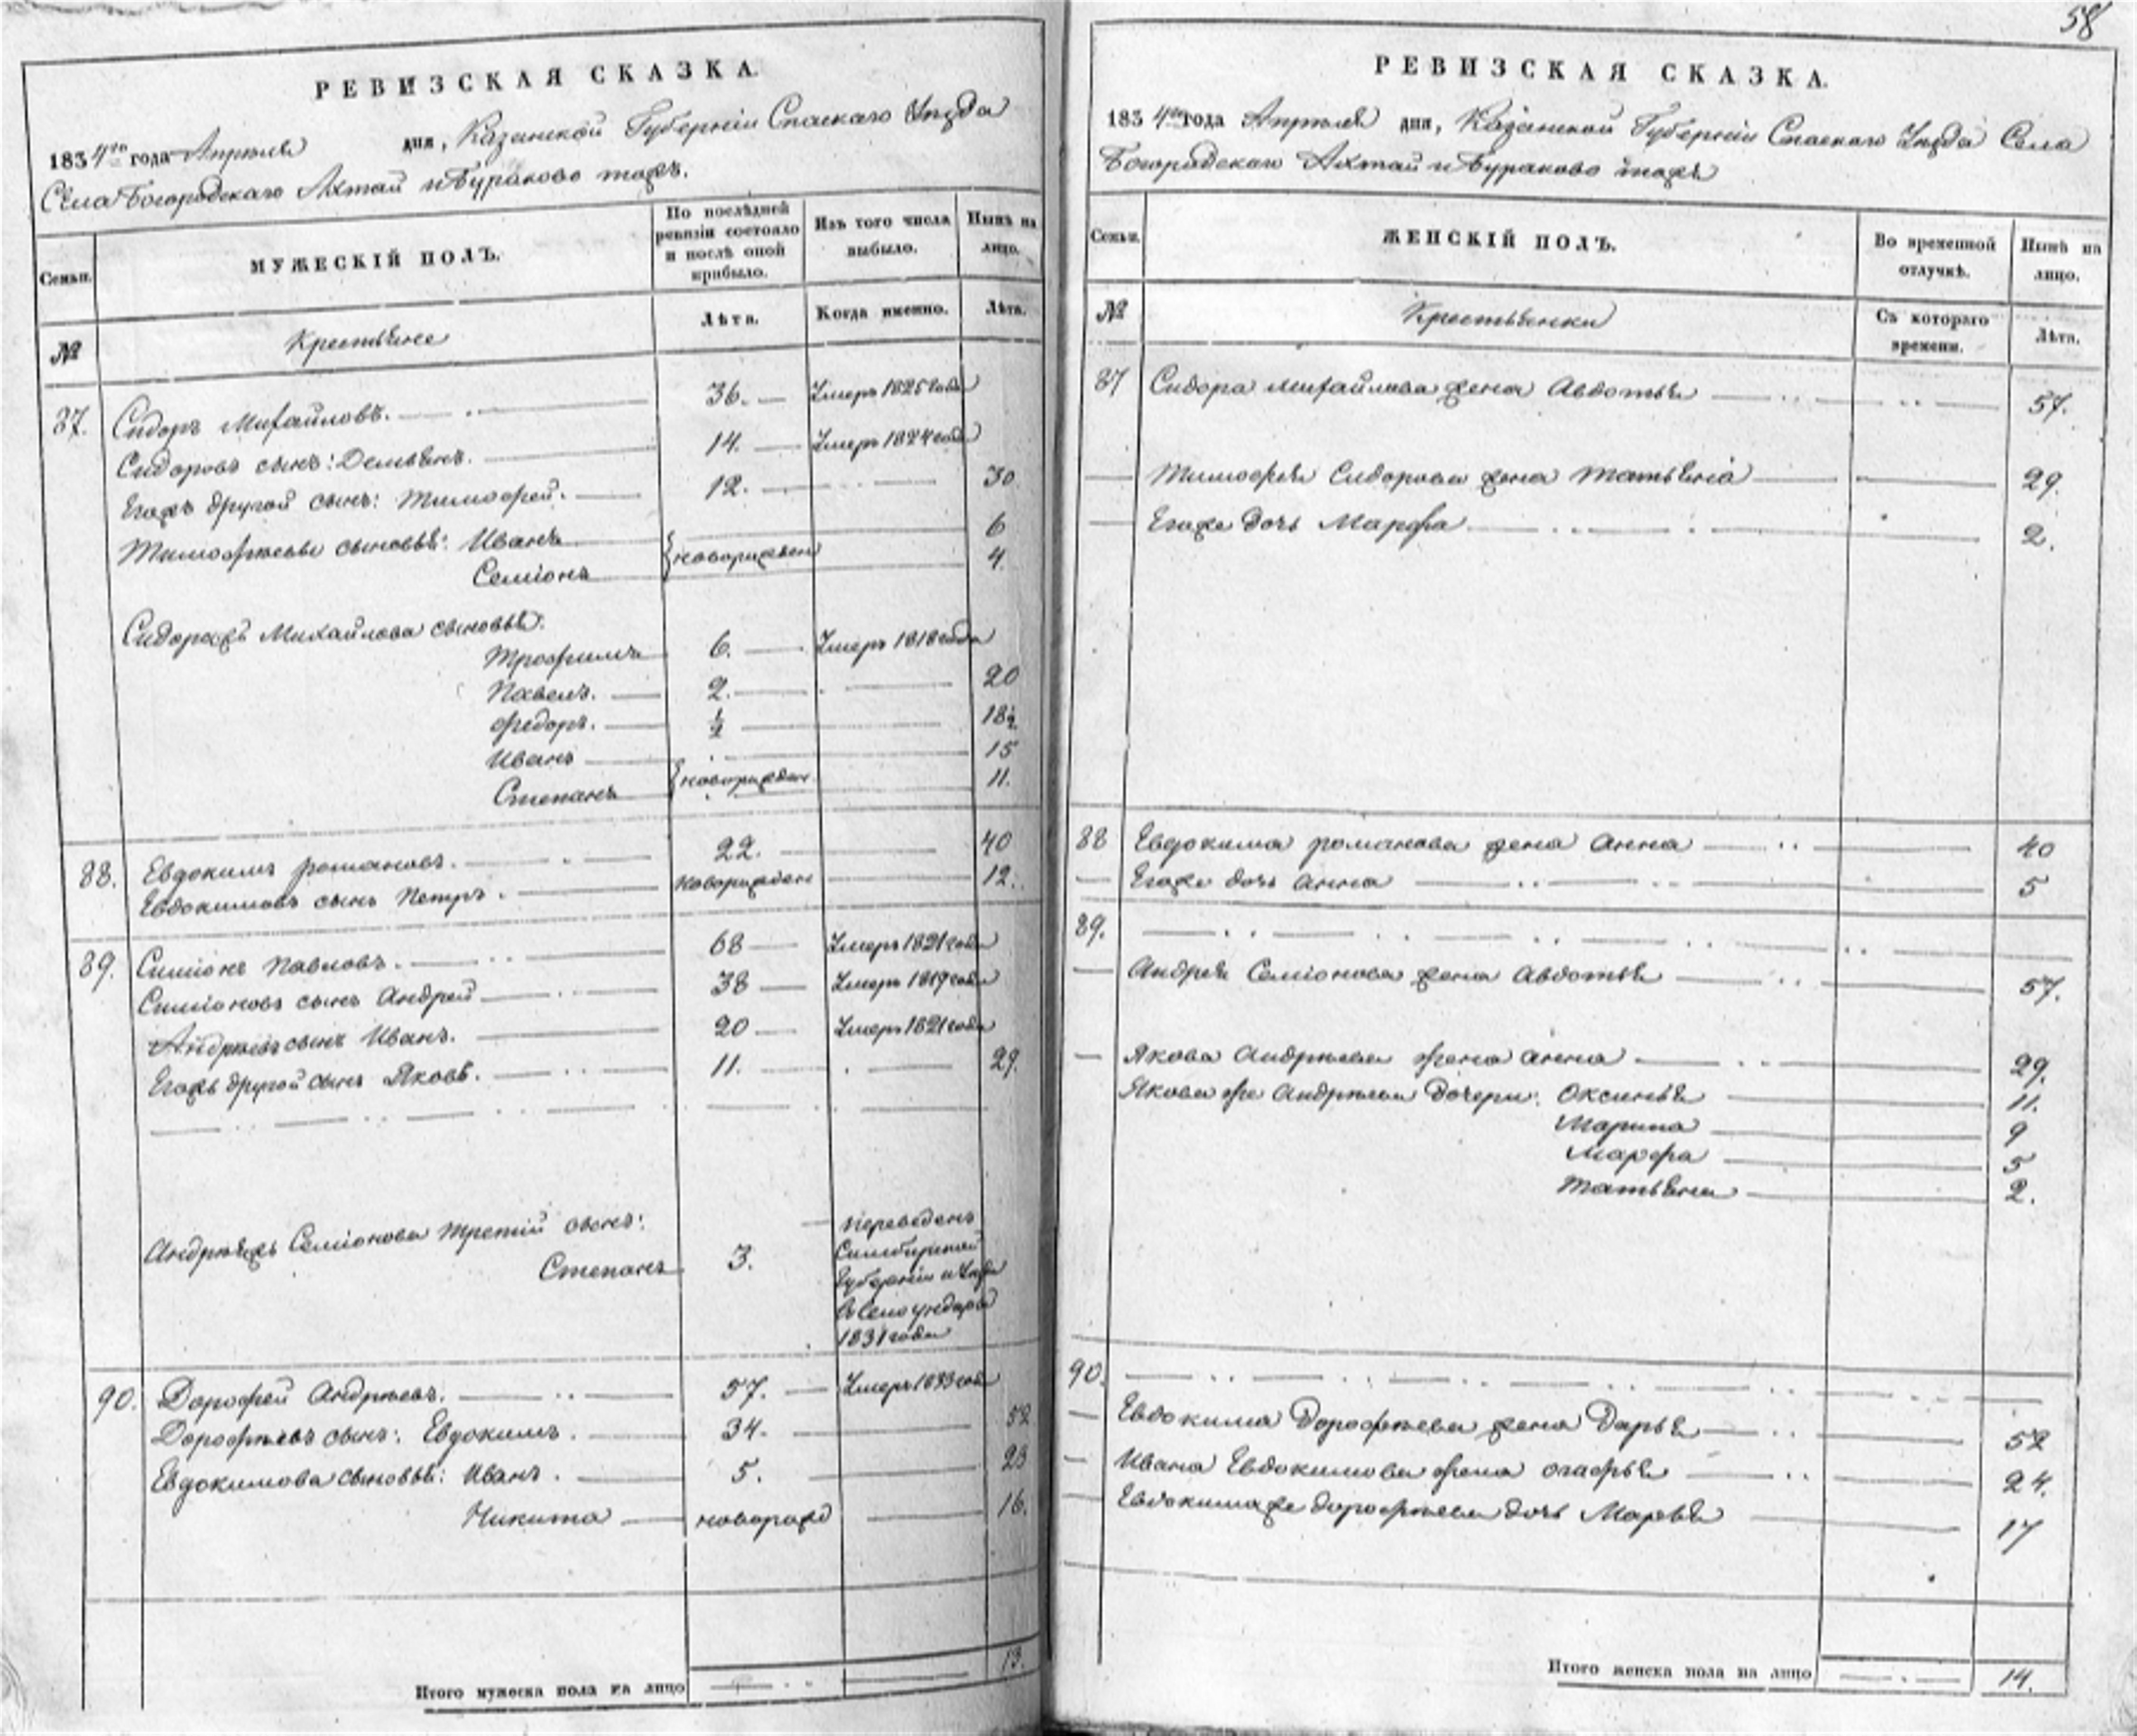 РЕВИЗСКАЯ СКАЗКА.
1834го года Апреля дня, Казанской Губернiи Спаскаго Уезда
Села Богородскаго Ахтаи и Бураково тожъ.
Семьи.
МУЖЕСКIЙ ПОЛЪ.
По послѣдней ревизiи состояло и послѣ оной прибыло.
Изъ того числа выбыло.
Нынѣ на лицо.
№
Крестьяне
Лѣта.
Когда именно.
Лѣта.
87. Сидоръ Михайловъ. 36. Умеръ 1825 года
Сидоровъ сынъ: Демьянъ. 14. Умеръ 1824 года
Егожъ другой сынъ: Тимофей. 12. 30
Тимофѣевы сыновья: Иванъ 6
Семiонъ новорожден 4
Сидоражъ Михайлова сыновья:
Трофимъ 6. Умеръ 1818 года
Павелъ. 2. 20
Федоръ. ½ 18½
Иванъ 15
Степанъ новорожден 11.
88. Евдокимъ романовъ. 22. 40
Евдокимовъ сынъ Петръ. новорожден 12.
89. Симiонъ Павловъ. 68 Умеръ 1821 года
Симiоновъ сынъ Андрей 38 Умеръ 1819 года
Андрѣевъ сынъ Иванъ. 20 Умеръ 1821 года
Егожъ другой сынъ Яковъ. 11. 29.
Андрѣяжъ Семiонова третiй сынъ:
Степанъ 3. переведенъ
Симбирской
Губернiи и Уезда
въ Село ундоры
1831 года
90. Дорофей Андрѣевъ. 57. Умеръ 1833 года
Дорофѣевъ сынъ: Евдокимъ. 34. 52
Евдокимова сыновья: Иванъ. 5. 23
Никита новорожд 16.
Итого мужеска пола на лицо 13.
58
РЕВИЗСКАЯ СКАЗКА.
1834го года Апреля дня, Казанской Губернiи Спаскаго Уезда Села
Богородскаго Ахтаи и Бураково тожъ
Семьи.
ЖЕНСКIЙ ПОЛЪ.
Во временной отлучкѣ.
Нынѣ на лицо.
№
Крестьянки
Съ котораго времени.
Лѣта.
87 Сидора Михайлова жена Авдотья 57.
Тимофея Сидорова жена Татьяна 29.
Егоже дочь Марфа 2.
88 Евдокима романова жена Анна 40
Егоже дочь Анна 5
89.
Андрея Семiонова жена Авдотья 57.
Якова Андрѣева жена Анна 29.
Якова же Андрѣева дочери: Оксинья 11.
Марина 9
Марфа 5
Татьяна 2.
90.
Евдокима Дорофѣева жена Дарья 52
Ивана Евдокимова жена огафья 24.
Евдокимаже дорофѣева дочь Марья 17
Итого женска пола на лицо 14.